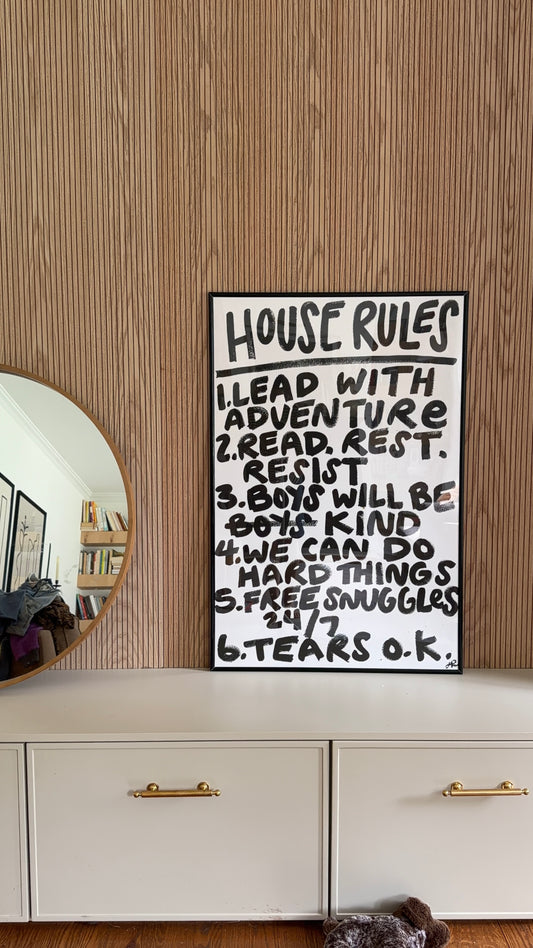 HOUSE RULES
1. LEAD WITH
ADVENTURE
2. READ. REST.
RESIST
3. BOYS WILL BE
BOYS KIND
4. WE CAN DO
HARD THINGS
5. FREE SNUGGLES
24/7
6. TEARS O.K.